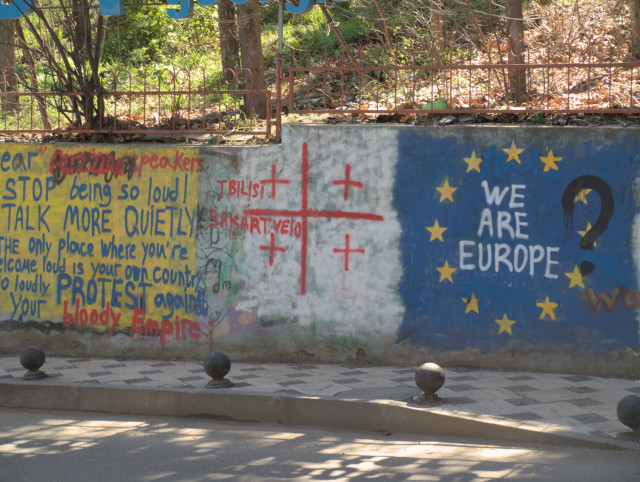 ear speakers
STOP being so loud!
TALK MORE QUIETLY
THE only place where you're
elcome loud is your own country
so loudly PROTEST against
your bloody Empire!
TBILISI
SAKARTVELO
WE
ARE
EUROPE
?